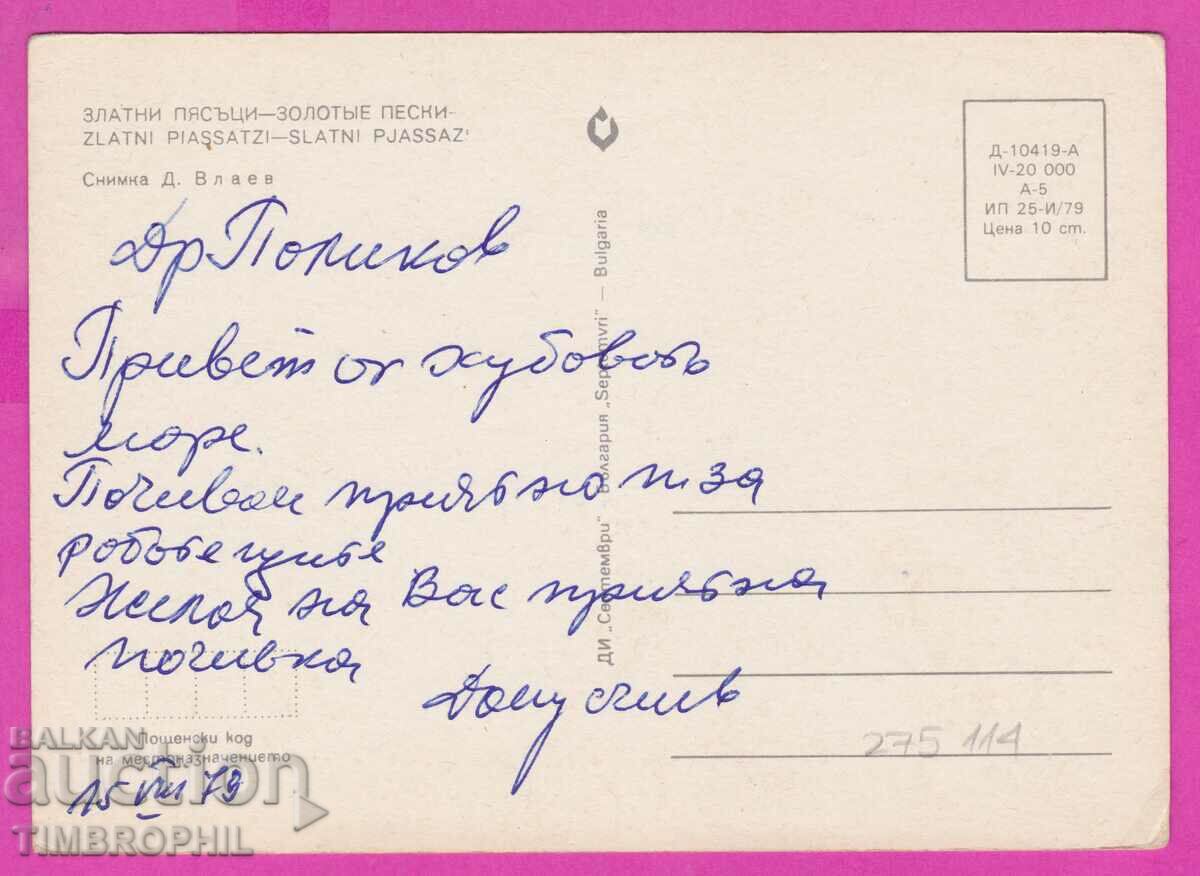 ЗЛАТНИ ПЯСЪЦИ—ЗОЛОТЫЕ ПЕСКИ-
ZLATNI PIASSATZI—SLATNI PJASSAZI
Снимка Д. Влаев
Д-10419-А
IV-20 000
А-5
ИП 25-И/79
Цена 10 ст.
Др Поликов
Привет от хубовото
море.
Почивам приятно и за
работещите
Желая на Вас приятна
почивка
ДИ „Септември" - България „Septemvri" — Bulgaria
Пощенски код
на местоназначението
15 VIII 79
275 114
BALKAN
auction
TIMBROPHIL